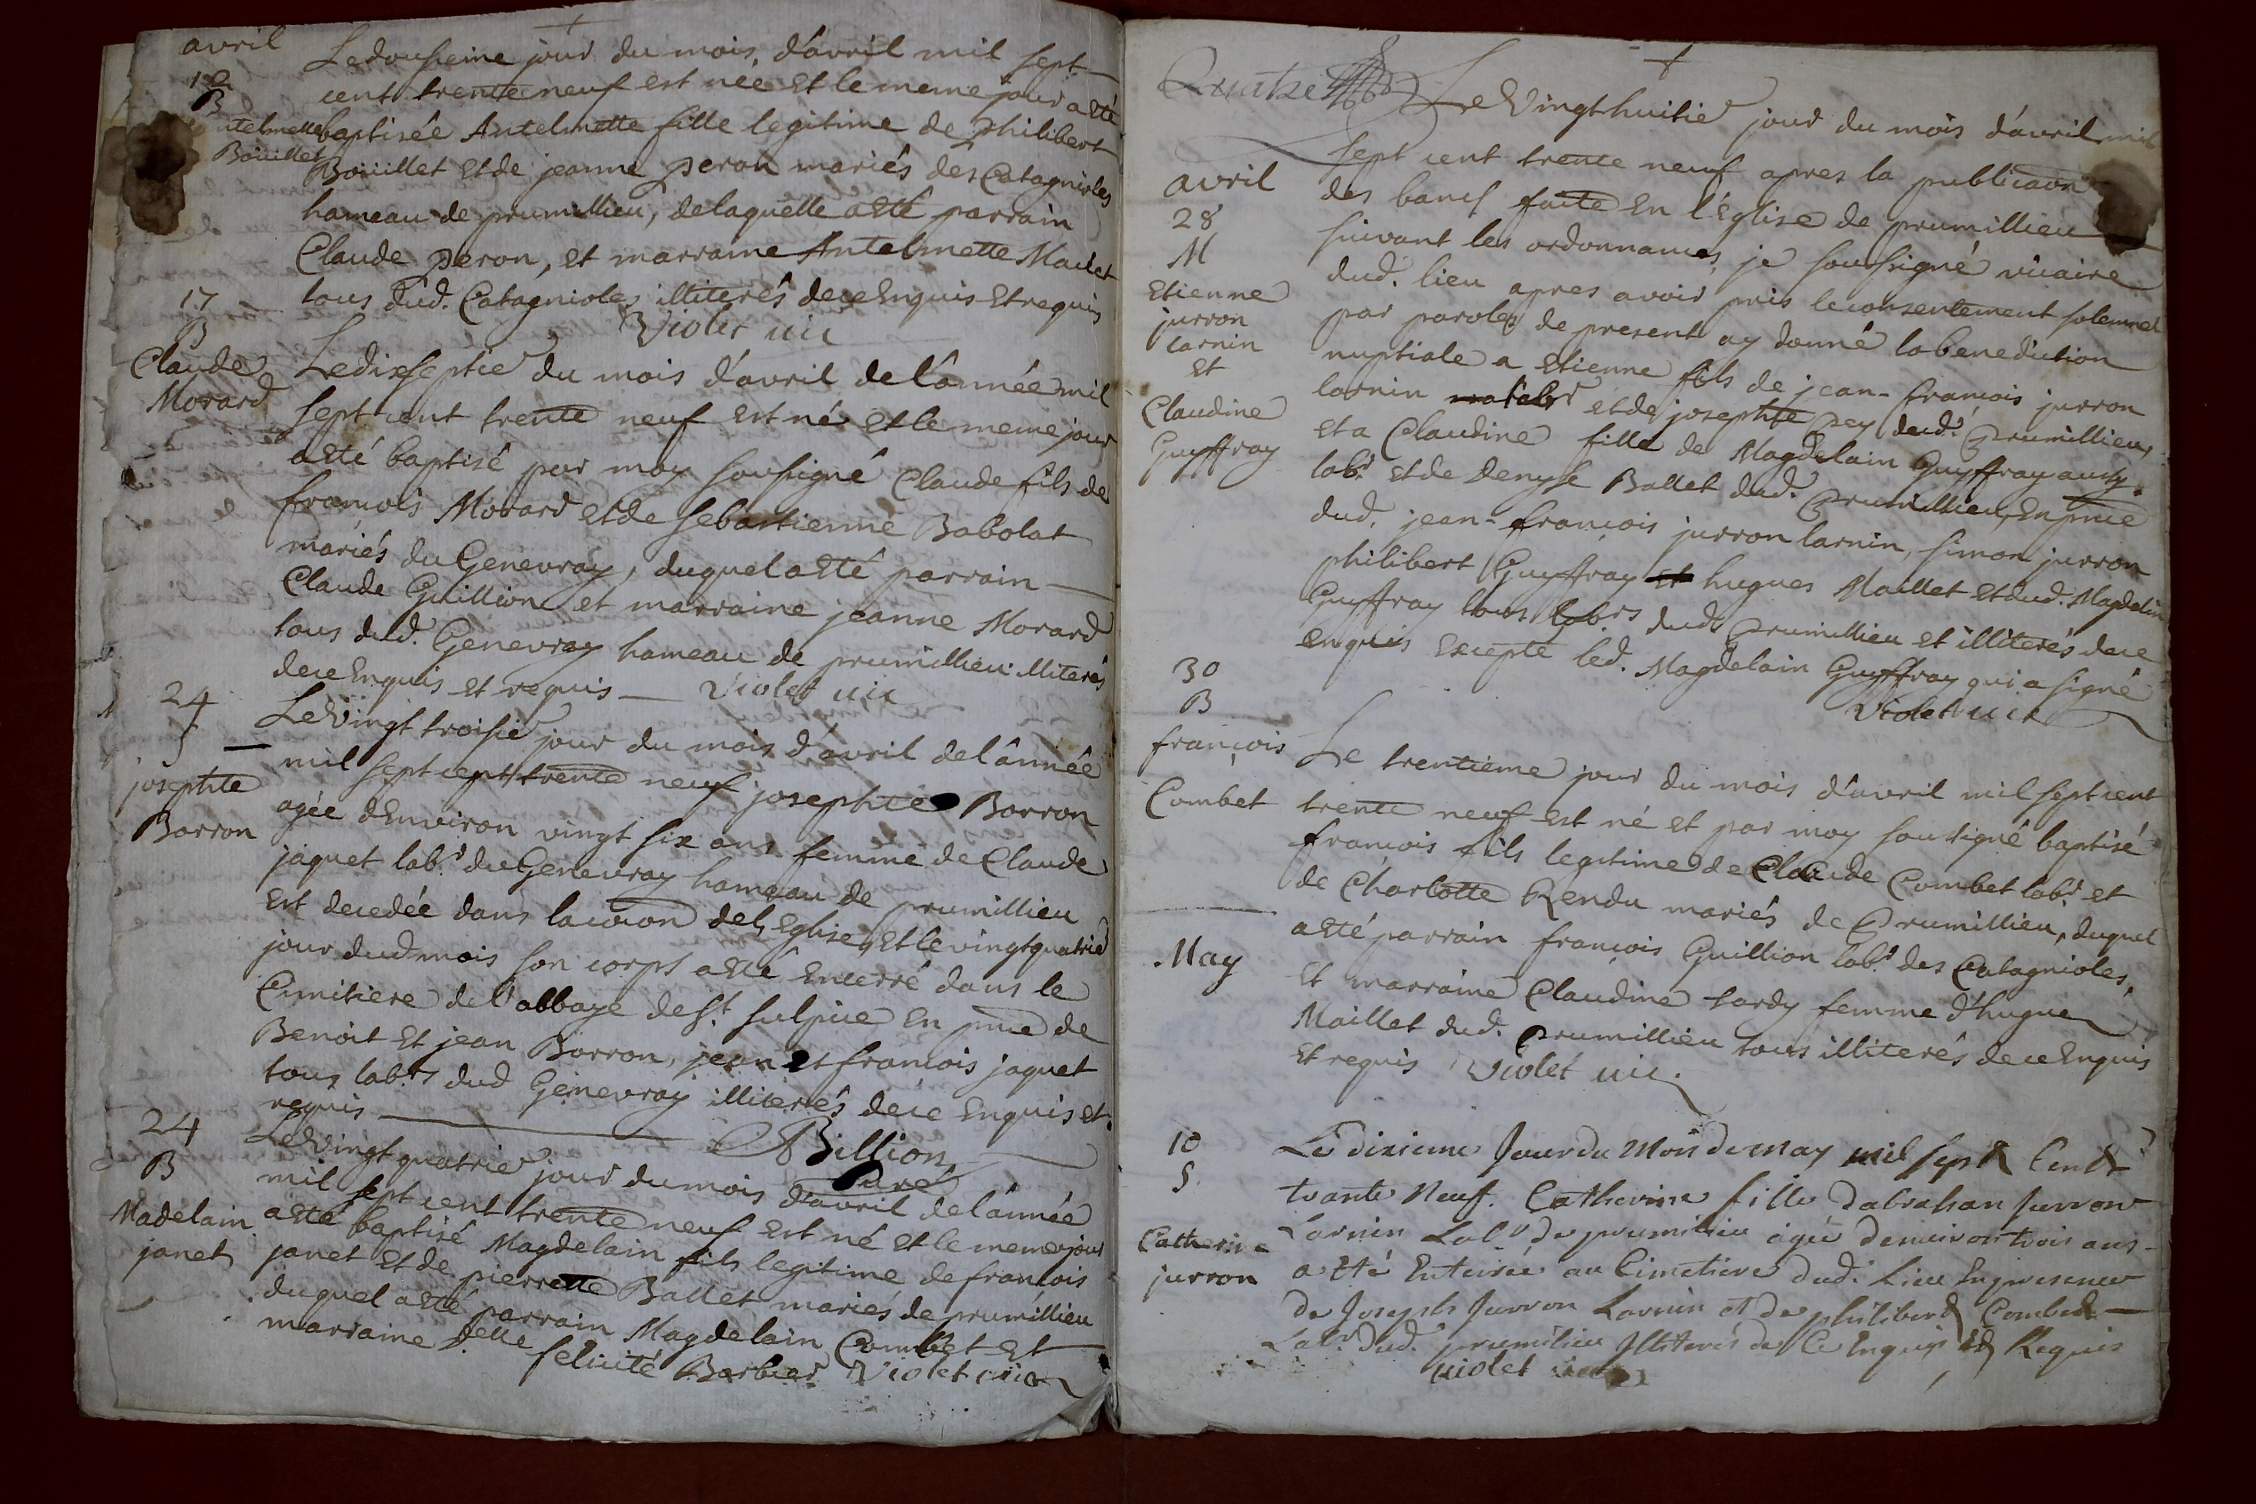 avril
12
B
Antelmette
Boüillet
Ledousieme jour du mois d'avril mil sept
cent trente neuf est née et le meme jour a eté
baptisée Antelmette fille legitime de philibert
Boüillet et de jeanne peron mariés des Catagnioles
hameau de prumillieu, delaquelle a eté parrain
Claude peron, et marraine Antelmette Mailet
tous dud. Catagnioles illiterés de ce Enquis Et requis
Violet vic
17
B
Claude
Morard
Ledixseptie du mois d'avril de l'année mil
sept cent trente neuf est né et le meme jour
a eté baptisé par moy sousigné Claude fils de
francois Morard et de sebastienne Babolat
mariés du Genevray, duquel a eté parrain
Claude Guillion et marraine jeanne Morard
tous dud. Genevray hameau de prumillieu illiterés
de ce Enquis et requis Violet vic
24
S
josephte
Borron
Le Vingt troisie jour du mois d'avril de l'année
mil sept cent trente neuf josephte Borron
agée d'Environ vingt six ans femme de Claude
jaquet labr. du Genevray hameau de prumillieu
est decedée dans la coion de l'Eglise, et le vingtquatrie
jour dud mois son corps a eté enterré dans le
Cimitiere de l'abbaye de st. sulpice en pnce de
Benoit et jean Borron, jean et francois jaquet
tous labrs. dud Genevray illiterés de ce Enquis et
requis
ABillion
Curé
24
B
Madelain
janet
Le Vingt quatrie jour du mois d'avril de l'année
mil sept cent trente neuf est né et le meme jour
a eté baptisé Magdelain fils legitime de francois
janet et de pierrette Ballet mariés de prumillieu
duquel a eté parrain Magdelain Combet et
marraine Delle felicité Barbier Violet vic
Quatre
avril
28
M
Etienne
jurron
larnin
et
Claudine
Guyffray
Le Vingt huitie jour du mois d'avril mil
sept cent trente neuf apres la publicaon
des bancs faite en l'Eglise de prumillieu
suivant les ordonnances je sousigné vicaire
dud. lieu apres avoir pris le consentement solemnel
par paroles de present ay donné la benediction
nuptiale a Etienne fils de jean-francois jurron
larnin et de josephte pey dud. prumillieu,
et a Claudine fille de Magdelain Guyffray aussy
labr. et de denyse Ballet dud. prumillieu, En pnce
dud. jean-francois jurron larnin, simon jurron
philibert Guyffray et hugues Maillet et dud. Magdelin
Guyffray tous labrs dud prumillieu et illiterés de ce
enquis Excepté led. Magdelain Guyffray qui a signé
Violet vic
30
B
françois
Combet
Le trentieme jour du mois d'avril mil sept cent
trente neuf est né et par moy sousigné baptisé
francois fils legitime de Claude Combet labr. et
de Charlotte Rendu mariés de prumillieu, duquel
a eté parrain francois Guillion labr. des Catagnioles,
et marraine Claudine tardy femme d'hugue
Maillet dud. prumillieu tous illiterés de ce Enquis
et requis Violet vic.
May
10
S
Catherine
jurron
Le dixieme Jour du Mois de may mil sept Cent
trante Neuf. Catherine fille d'abraham Jurron
Larnin Labr de prumilieu agée denviron trois ans
a Eté Enterrée au Cimetiere dud. Lieu En presence
de Joseph Jurron Larnin et de philibert Combet
Labr. dud. prumilieu Illiterés de Ce Enquis et Requis
violet vic